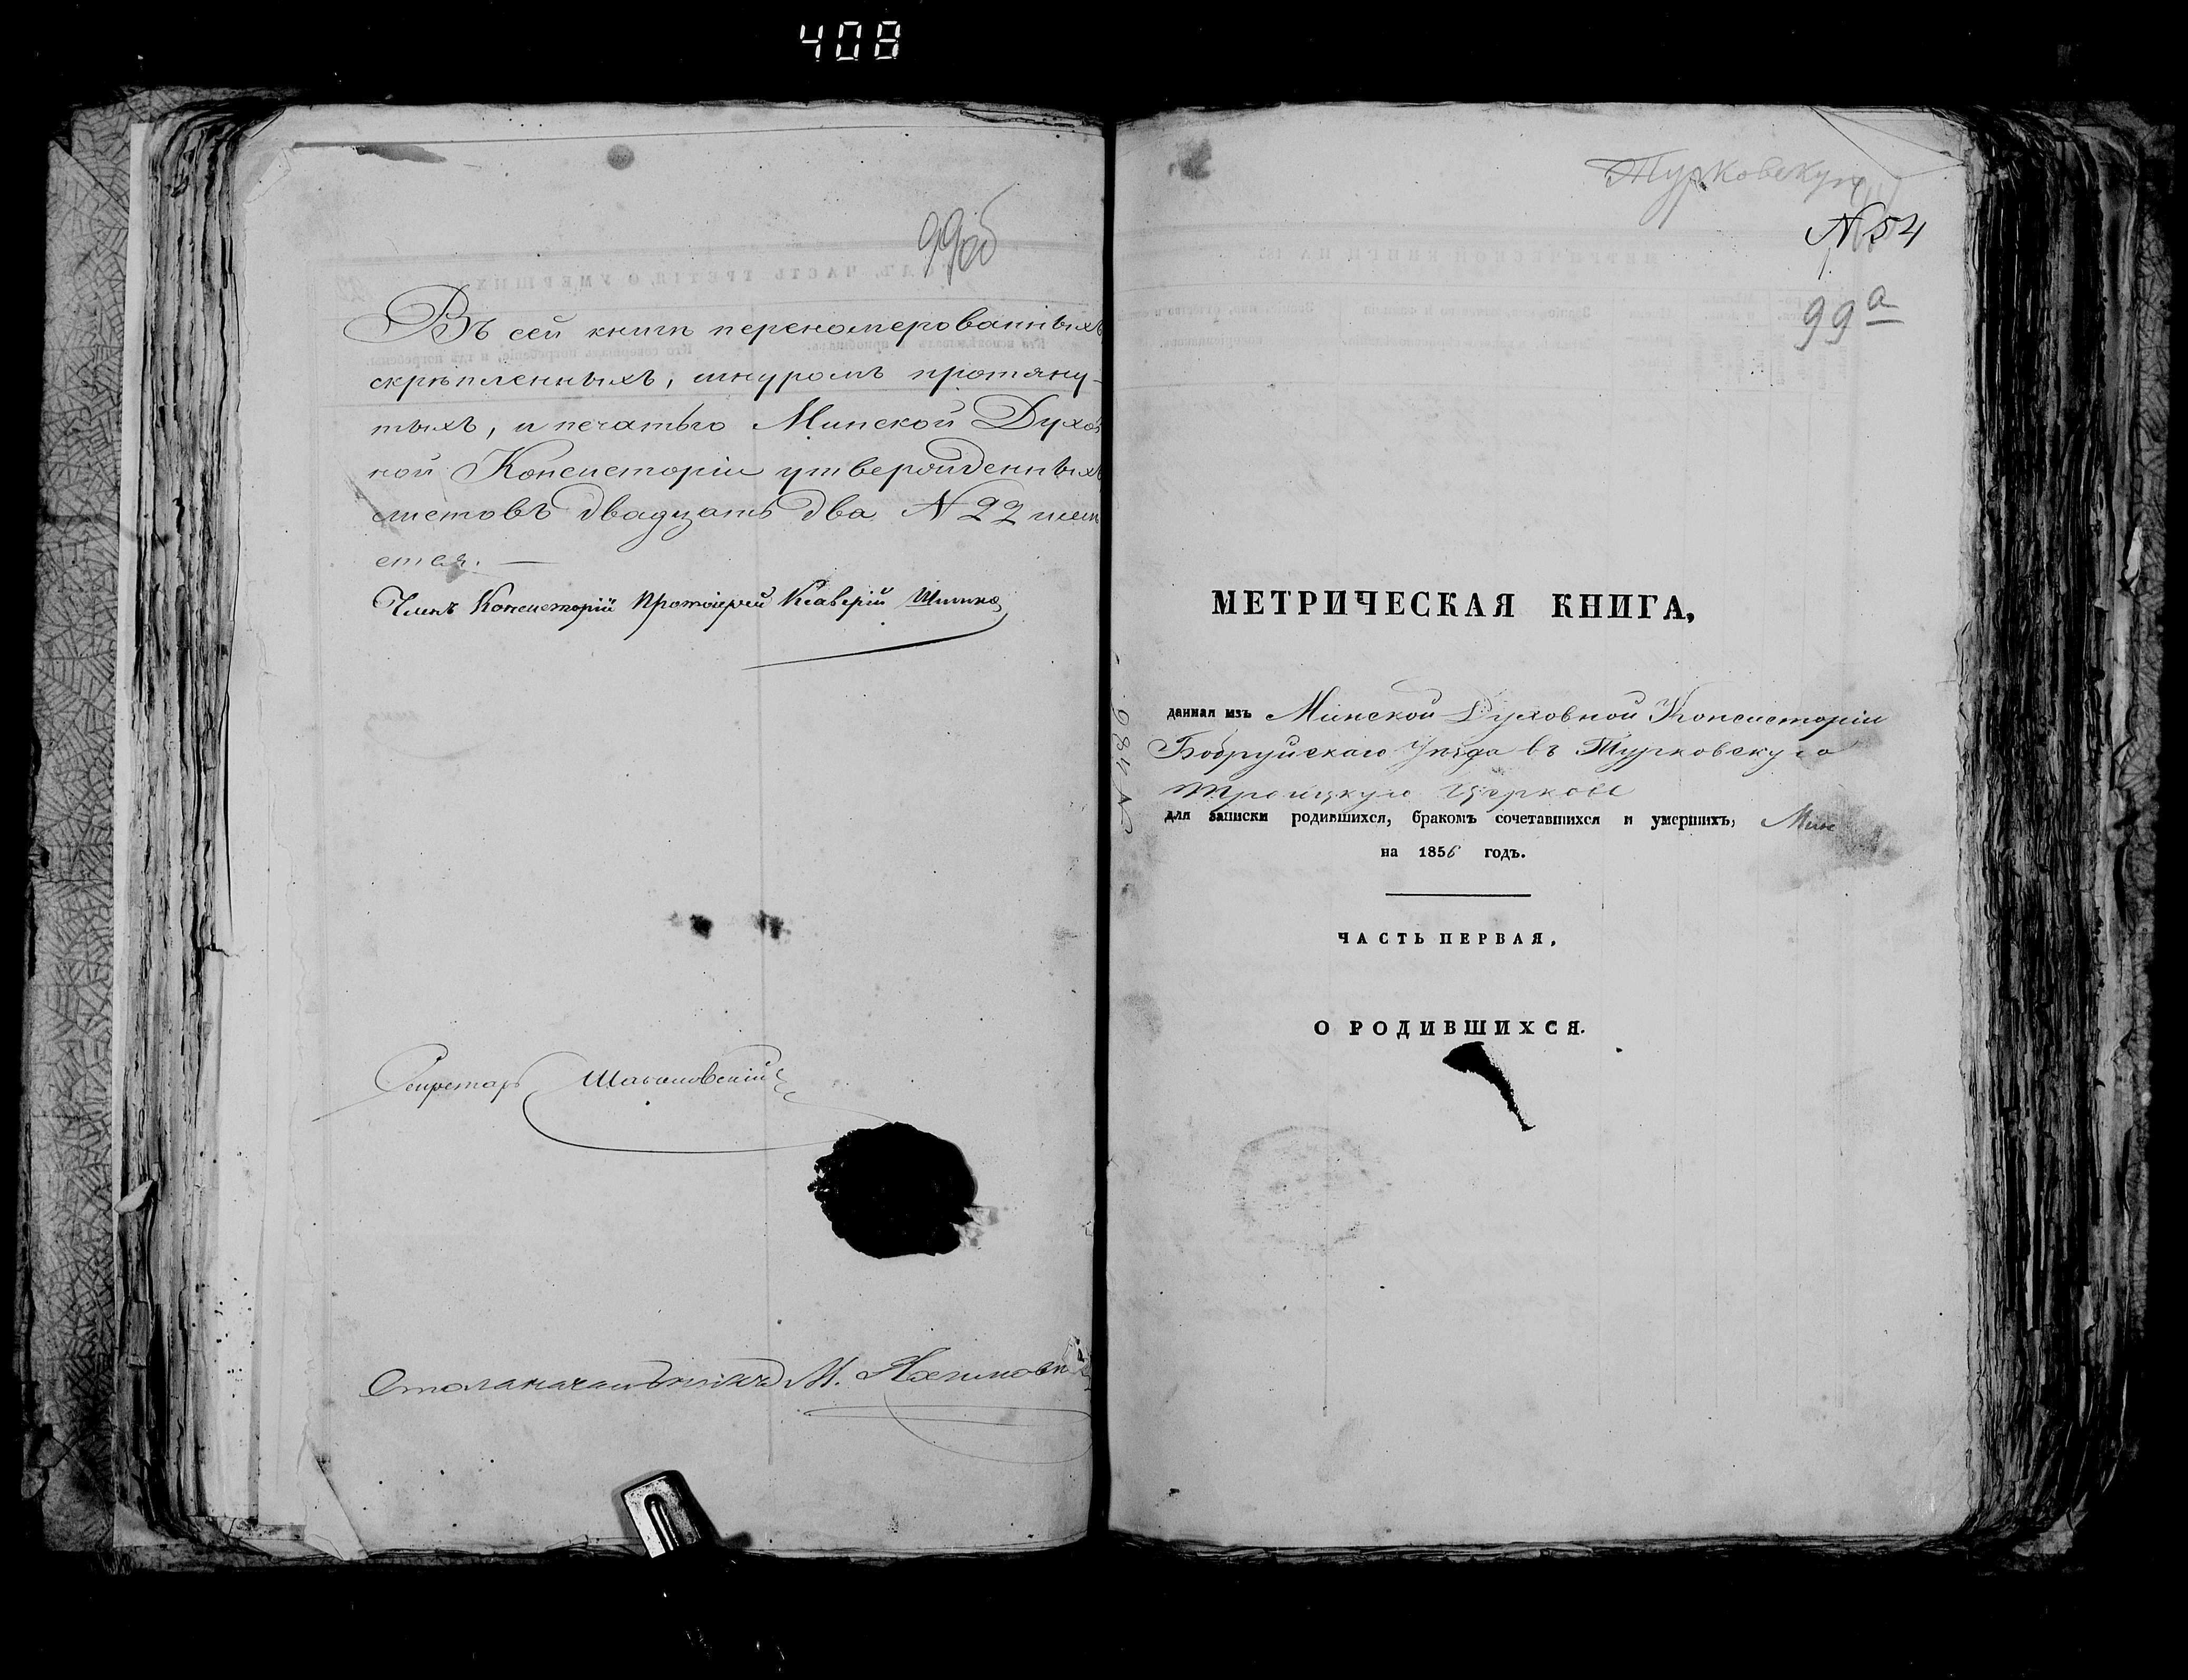 408
99об
Въ сей книгѣ перенумерованныхъ
скрѣпленныхъ, шнуромъ протяну-
тыхъ, и печатью Минской Духов
ной Консисторіи утвержденныхъ
листовъ двадцать два № 22 име
ется. —
Членъ Консисторіи Протоіерей Ксаверій
Секретарь
Столоначальникъ М.
Турковскую
№ 54
99а
МЕТРИЧЕСКАЯ КНИГА,
данная изъ Минской Духовной Консисторіи
Бобруйскаго Уѣзда въ Турковскую
Троицкую Церковь
для записки родившихся, бракомъ сочетавшихся и умершихъ,
на 1856 годъ.
ЧАСТЬ ПЕРВАЯ,
О РОДИВШИХСЯ.